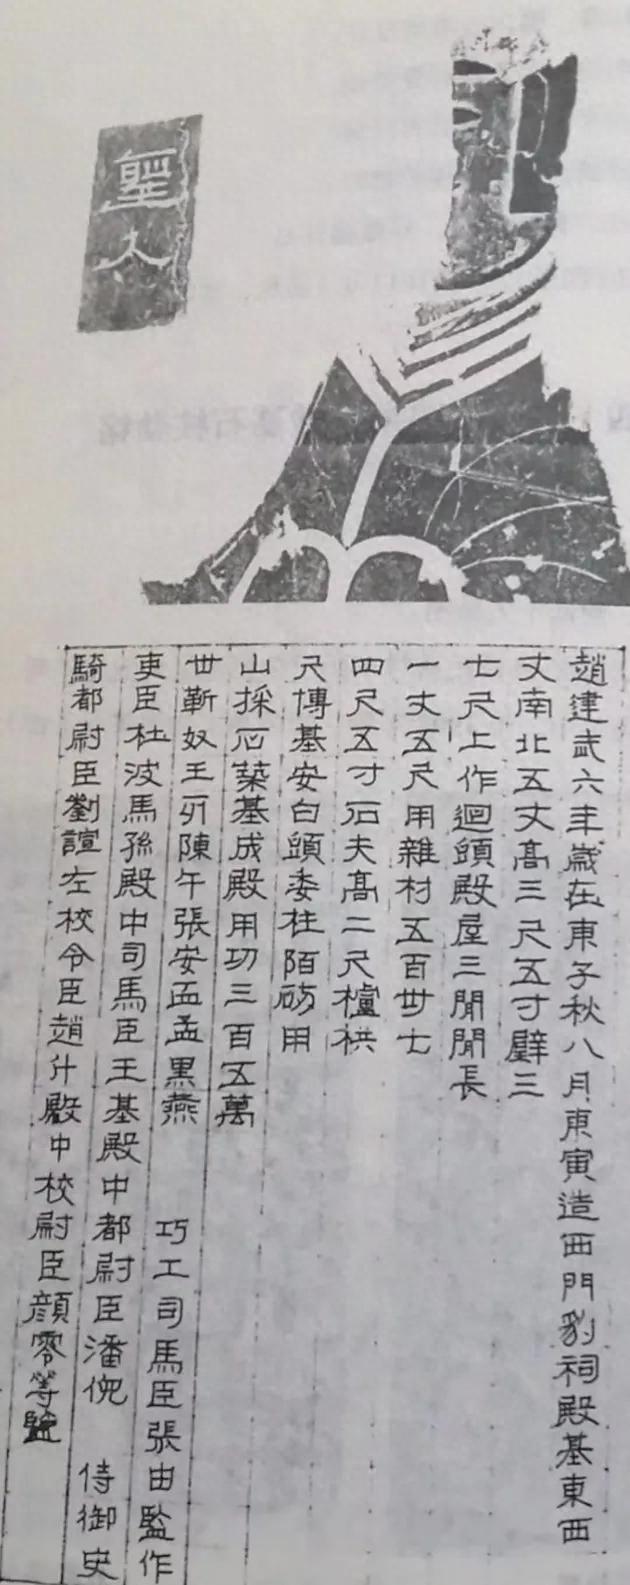 聖人
趙建武六年歲在庚子秋八月庚寅造西門豹祠殿基東西
丈南北五丈高三尺五寸璧三
七尺上作迴頭殿屋三間間長
一丈五尺用雜材五百卅七
四尺五寸石夫高二尺櫨栱
尺塼基安白頭委柱陌砌用
山採石築基成殿用功三百五萬
世靳奴王刋陳午張安孟孟黑燕 巧工司馬臣張由監作
吏臣杜波馬孫殿中司馬臣王基殿中都尉臣潘倪 侍御史
騎都尉臣劉諠左校令臣趙升殿中校尉臣顏零等監